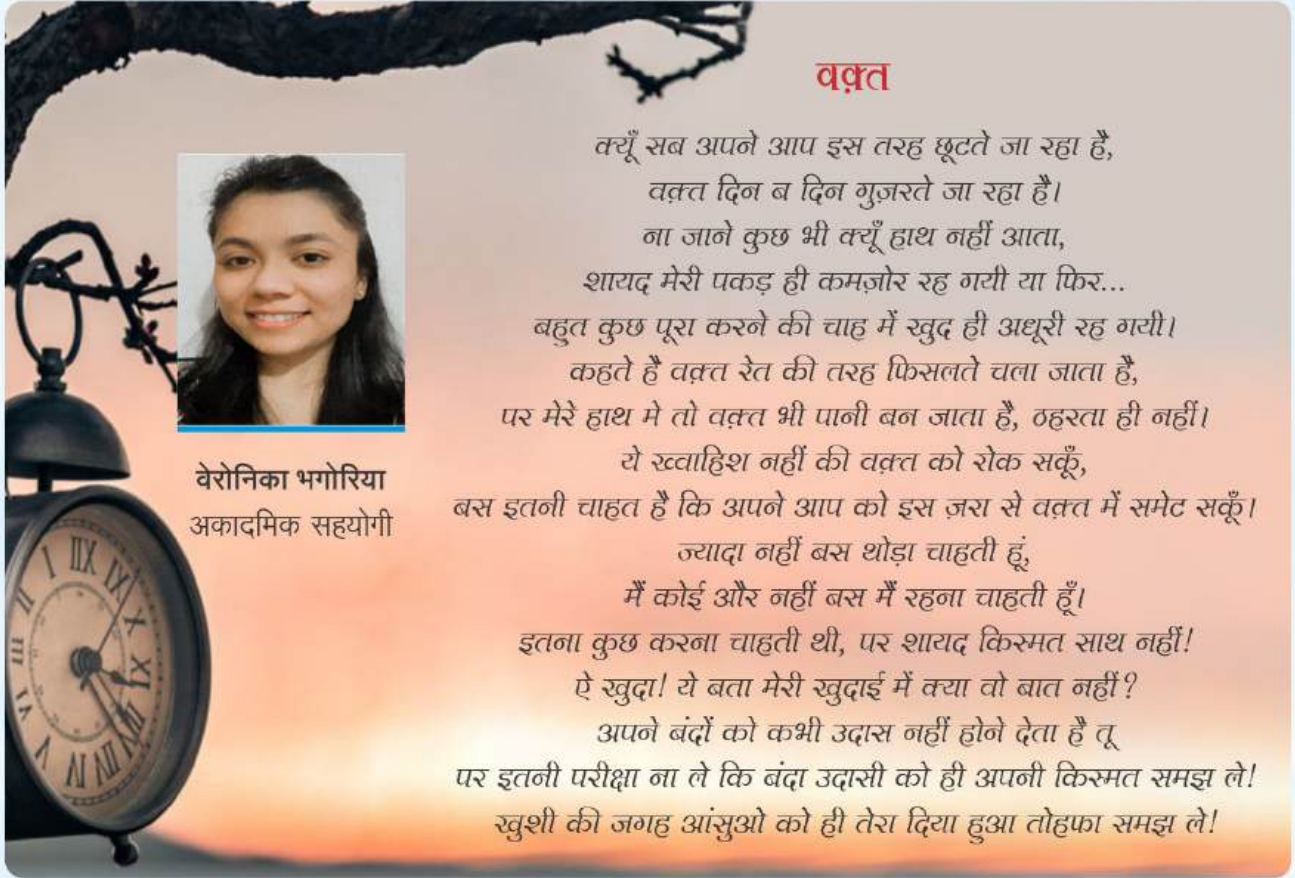 वक़्त
क्यूँ सब अपने आप इस तरह छूटते जा रहा है,
वक़्त दिन ब दिन गुज़रते जा रहा है।
ना जाने कुछ भी क्यूँ हाथ नहीं आता,
शायद मेरी पकड़ ही कमज़ोर रह गयी या फिर...
बहुत कुछ पूरा करने की चाह में खुद ही अधूरी रह गयी।
कहते है वक़्त रेत की तरह फिसलते चला जाता है,
पर मेरे हाथ मे तो वक़्त भी पानी बन जाता है, ठहरता ही नहीं।
ये ख्वाहिश नहीं की वक़्त को रोक सकूँ,
बस इतनी चाहत है कि अपने आप को इस ज़रा से वक़्त में समेट सकूँ।
ज्यादा नहीं बस थोड़ा चाहती हूं,
मैं कोई और नहीं बस मैं रहना चाहती हूँ।
इतना कुछ करना चाहती थी, पर शायद किस्मत साथ नहीं!
ऐ खुदा! ये बता मेरी खुदाई में क्या वो बात नहीं?
अपने बंदों को कभी उदास नहीं होने देता है तू
पर इतनी परीक्षा ना ले कि बंदा उदासी को ही अपनी किस्मत समझ ले!
खुशी की जगह आंसुओ को ही तेरा दिया हुआ तोहफा समझ ले!
वेरोनिका भगोरिया
अकादमिक सहयोगी
I IIX IX X XI II III VI V IV